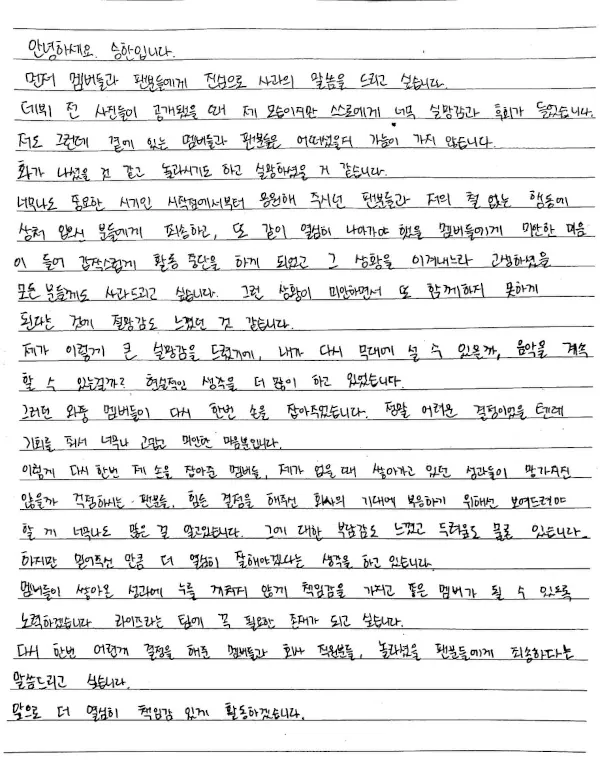 안녕하세요. 승한입니다.
먼저 멤버들과 팬분들에게 진심으로 사과의 말씀을 드리고 싶습니다.
데뷔 전 사진들이 공개됐을 때 제 모습이지만 스스로에게 너무 실망감과 후회가 들었습니다.
저도 그런데 곁에 있는 멤버들과 팬분들은 어떠셨을지 가늠이 가지 않습니다.
화가 나셨을 것 같고 놀라시기도 하고 실망하셨을 거 같습니다.
너무나도 중요한 시기인 시작점에서부터 응원해 주시던 팬분들과 저의 철 없는 행동에
상처 입으신 분들에게 죄송하고, 또 같이 열심히 나아가야 했을 멤버들에게 미안한 마음
이 들어 갑작스럽게 활동 중단을 하게 되었고 그 상황을 이겨내느라 고생하셨을
모든 분들께도 사과드리고 싶습니다. 그런 상황이 미안하면서 또 함께하지 못하게
된다는 것에 절망감도 느꼈던 것 같습니다.
제가 이렇게 큰 실망감을 드렸기에, 내가 다시 무대에 설 수 있을까, 음악을 계속
할 수 있는걸까? 현실적인 생각을 더 많이 하고 있었습니다.
그러던 와중 멤버들이 다시 한번 손을 잡아주었습니다. 정말 어려운 결정이었을 텐데
기회를 줘서 너무나 고맙고 미안한 마음뿐입니다.
이렇게 다시 한번 제 손을 잡아준 멤버들, 제가 없을 때 쌓아가고 있던 성과들이 망가지진
않을까 걱정하시는 팬분들, 힘든 결정을 해주신 회사의 기대에 부응하기 위해선 보여드려야
할 게 너무나도 많은 걸 알고있습니다. 그에 대한 부담감도 느꼈고 두려움도 물론 있습니다.
하지만 믿어주신 만큼 더 열심히 잘해야겠다는 생각을 하고 있습니다.
멤버들이 쌓아온 성과에 누를 끼치지 않게 책임감을 가지고 좋은 멤버가 될 수 있도록
노력하겠습니다 라이즈라는 팀에 꼭 필요한 존재가 되고 싶습니다.
다시 한번 어렵게 결정을 해준 멤버들과 회사 직원분들, 놀라셨을 팬분들에게 죄송하다는
말씀드리고 싶습니다.
앞으로 더 열심히 책임감 있게 활동하겠습니다.